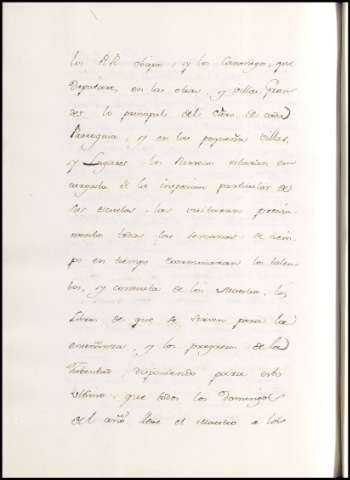 los RR obispos, y los Canonigos, que
Diputare, en las otras, y villas gran
des lo principal del Clero de cada
Parroquia, y en las pequeñas villas,
y Lugares los Parrocos estaran en
cargados de la inspeccion particular de
las escuelas, las visitaran precisa
mente todas las semanas, de tiem
po en tiempo examinaran los talen
tos, y conducta de los Maestros, los
Libros de que se sirven para la
enseñanza, y los progresos de la
Juventud disponiendo para esto
ultimo, que todos los Domingos
del año lleve el Maestro a los